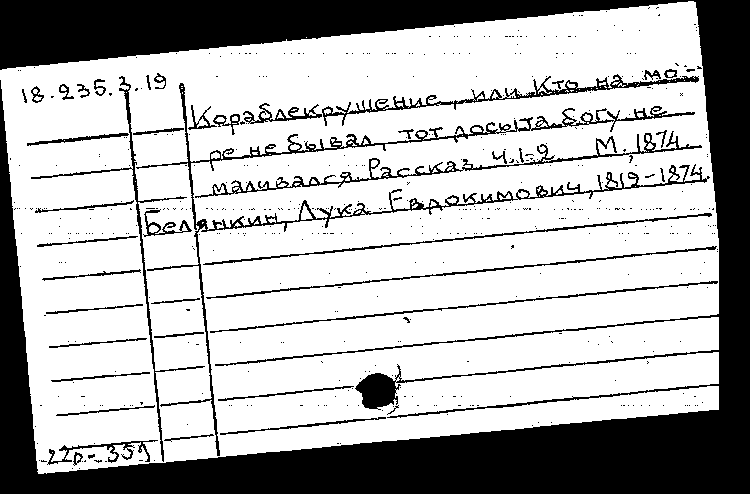 18.235.3.19
Кораблекрушение, или Кто на мо-
ре не бывал, тот досыта богу не
маливался. Рассказ. Ч.1-2 М., 1874.
Белянкин, Лука Евдокимович, 1819-1874.
22р-359